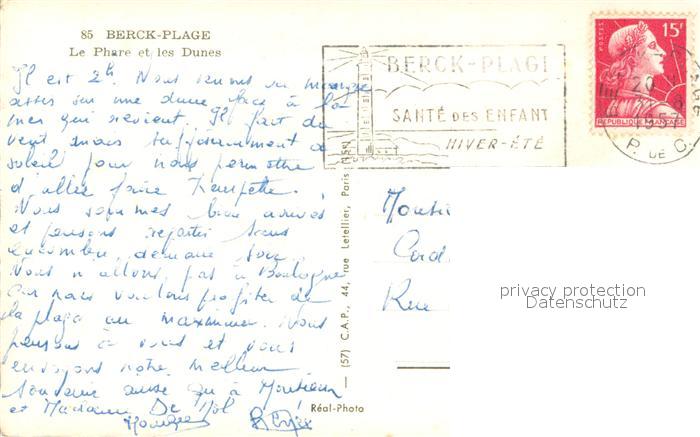 85 BERCK-PLAGE
Le Phare et les Dunes
Il est 2h. Nous venons de manger
assis sur une dune face à la
mer qui revient. Il fait du
vent, mais suffisamment de
soleil pour nous permettre
d'aller faire trempette.
Nous sommes bien arrivés
et pensons repartir sans
encombre, demain soir.
Nous n'allons pas à Boulogne
car nous voulons profiter de
la plage au maximum. Nous
pensons à vous et vous
envoyons notre meilleur
souvenir ainsi qu'à Monsieur
et Madame De
BERCK-PLAGE
SANTÉ DES ENFANT
HIVER-ÉTÉ
POSTES
15F
REPUBLIQUE FRANÇAISE
20
1957
P. DE C.
(57) C.A.P., 44, rue Letellier, Paris
Réal-Photo
Monsi
Cord
Rue
privacy protection
Datenschutz